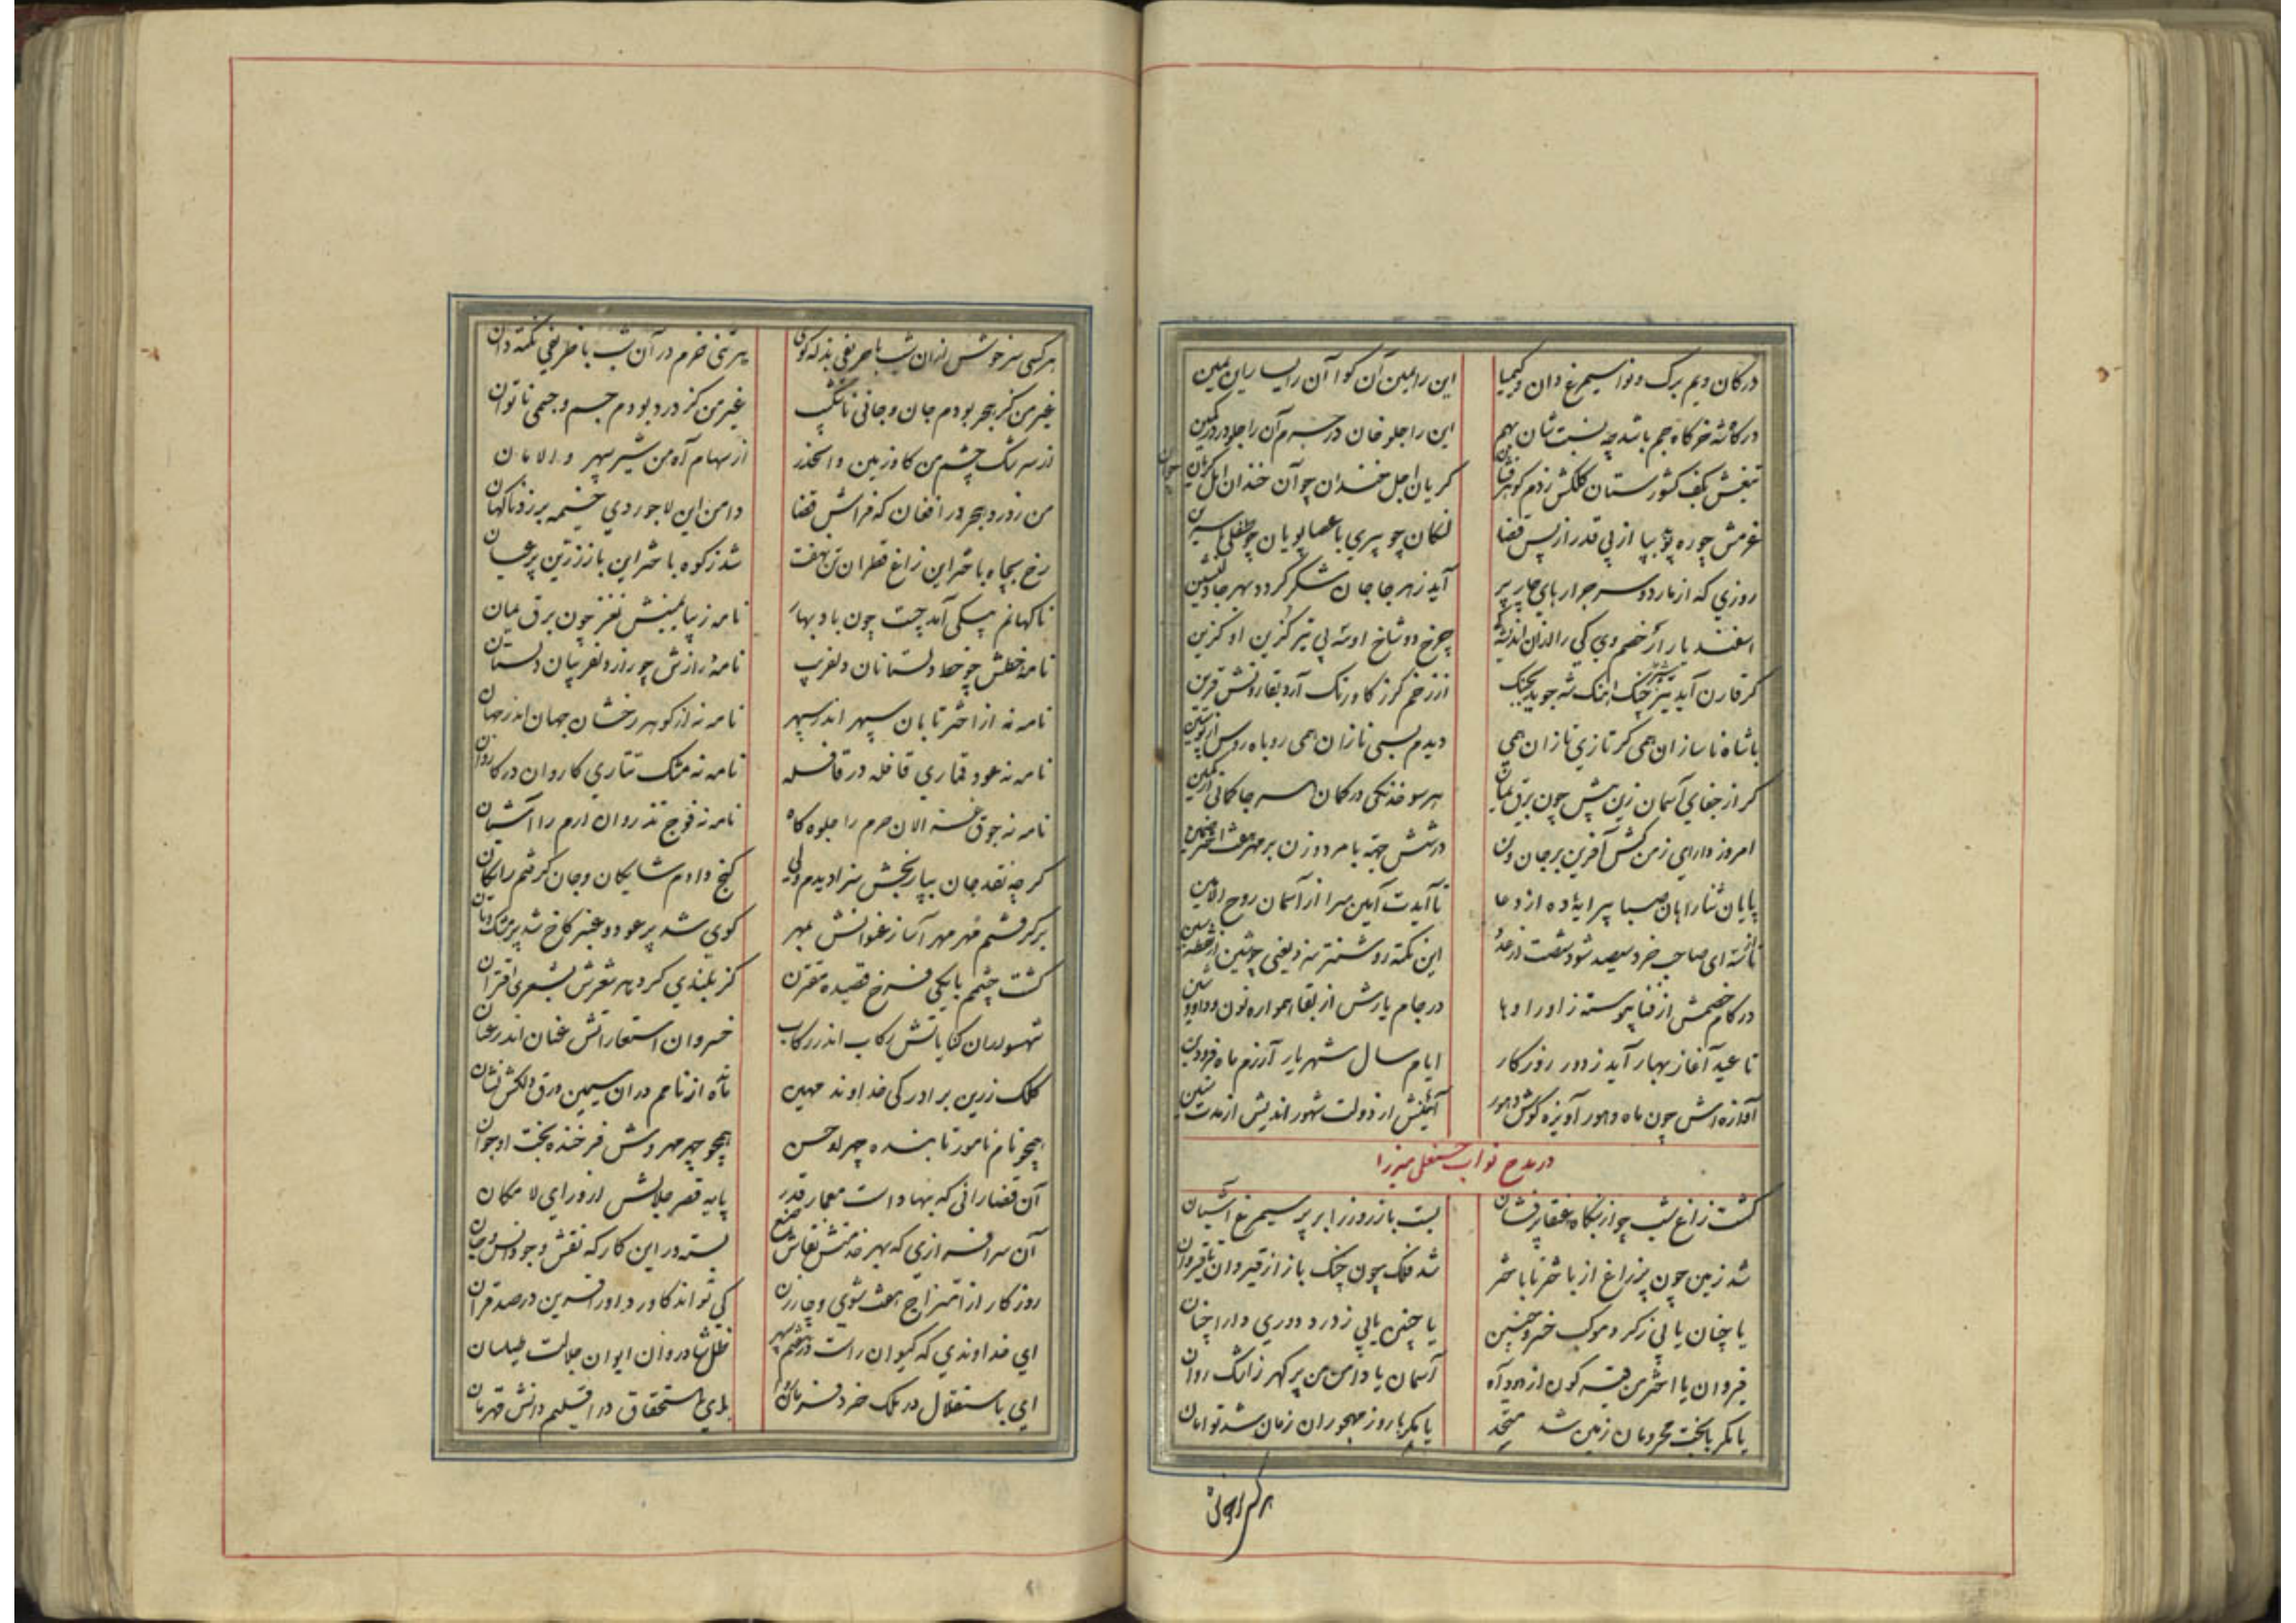 در کان ویم برک و نوا سیمرغ دان و کیمیا
این را یمین آن کوا آن را یسار این یمین
در کاخ شه خرکاه جم باشد چه نسبت شان بهم
این را جلو خان در حرم آن را جلودر در کمین
تیغش بکف کشورستان کلکش زدم کوهرفشان
کریان اجل خندان چو آن خندان امل کریان چو این
عزمش چو ره پوید بپا از پی قدر از پس قضا
لنکان چو پیری با عصا پویان چو طفلی
روزی که از
آید ز هر جا جان شکر کردد بهر جا
اسفندیار ار خصم وی کی راند از اندیشه
چرخ دو شاخ او
کر قارن آید تیز چنک آهنک شه جوید بجنک
از زخم کرز کاو رنک آرد بقارونش قرین
با شاه ناسازان همی کر تازی نازان همی
دیدم بسی نازان همی روباه
کر از جفای آسمان زین پیش چون برق یمان
هر سو خدنکی در کمان هر جا کمانی در کمین
امروز دارای زمن کش آفرین بر جان و تن
در شش جهت
پایان ثنا را هان صبا پیرایه ده از دعا
تا آیدت آمین سرا از آسمان روح الامین
تا زنده ای صاحب خرد سیصد شود شصت از عدد
این نکته روشنتر
در کام خصمش از فنا پیوسته زا و را و ها
در جام یارش از بقا همواره نون و واو و شین
تا عید آغاز بهار آید ز دور روزکار
ایام سال شهریار آرزم ماه فرودین
آوازه اش چون ماه و هور آویزه کوش دهور
از دولت شهور اندیش از مدت سنین
در مدح نواب حسنعلی میرزا
کشت زاغ شب چو از بنکاه عنقا پرفشان
بست باز روز را بر پر سیمرغ آشیان
شد زمین چون پر زاغ از باختر تا باختر
شد فلک چون چنک باز از قیروان تا قیروان
یا چنان یا پی ز کرد موکب خسرو چنین
یا چنین یا پی ز درد دوری دارا چنان
قیروان یا اختر من قیرکون از دود آه
آسمان یا دامن من پر کهر ز اشک روان
یا مکر با بخت محرومان زمین شد متحد
یا مکر با روز مهجوران زمان شد توامان
هر کس سرخوش در آن شب با حریفی بذله کوی
هر تنی خرم در آن شب با ظریفی نکته دان
غیر من کز هجر بودم جان و جانی ناشکیب
غیر من کز درد بودم جسم و جسمی ناتوان
از سرشک چشم من کاو زمین و الحذر
از سهام آه من شیر سپهر و الامان
من ز درد هجر در افغان که فراش قضا
دامن این لاجوردی خیمه بر زد ناکهان
رخ بچاه باختر این زاغ قطران تن نهفت
شد ز کوه باختر این باز زرین پر عیان
ناکهانم پیکی آمد چست چون باد بهار
نامه زیبا یمینش نغز چون برق یمان
نامه خطش چو خط دلستانان دلفریب
نامه رازش چو راز دلفریبان دلستان
نامه نه از اختر تابان سپهر اندر سپهر
نامه نه از کوهر رخشان جهان اندر جهان
نامه نه عود قماری قافله در قافله
نامه نه مشک تتاری کاروان در کاروان
نامه نه جوق غزالان حرم را جلوه کاه
نامه نه فوج تذروان ارم را آشیان
کر چه نقد جان بپا رنجش سزا دیدم ولی
کنج دادم شایکان و جان کرفتم رایکان
بر کرفتم مهر مهر آسا ز عنوانش بمهر
کوی شد پر عود و عنبر کاخ شد پر مشک و بان
کشت چشمم با یکی فرخ قصیده مقترن
کز بلندی کرد هر شعرش بشعری اقتران
شهسواران کنایاتش رکاب اندر رکاب
خسروان استعاراتش عنان اندر عنان
کلک زرین برادر کی خداوند مهین
تا از نامم در آن سیمین ورق دلکش نشان
همچو نام نامور تابنده چهر او حسن
همچو چهر مهروش فرخنده بخت او جوان
آن قضا رانی که بنهادست معمار قدر
پایه قصر جلالش از ورای لا مکان
آن سرافرازی که بهر خدمتش نقاش صنع
بسته در این کارکه نقش وجود انس و جان
روزکار از امتزاج هفت شوی و چار زن
کی تواند کاورد او را قرین در صد قران
ای خداوندی که کیوان راست در هفتم سپهر
ظل شادروان ایوان جلالت طیلسان
ای باستقلال در ملک خرد فرمانروا
بادی باستحقاق در اقلیم دانش قهرمان